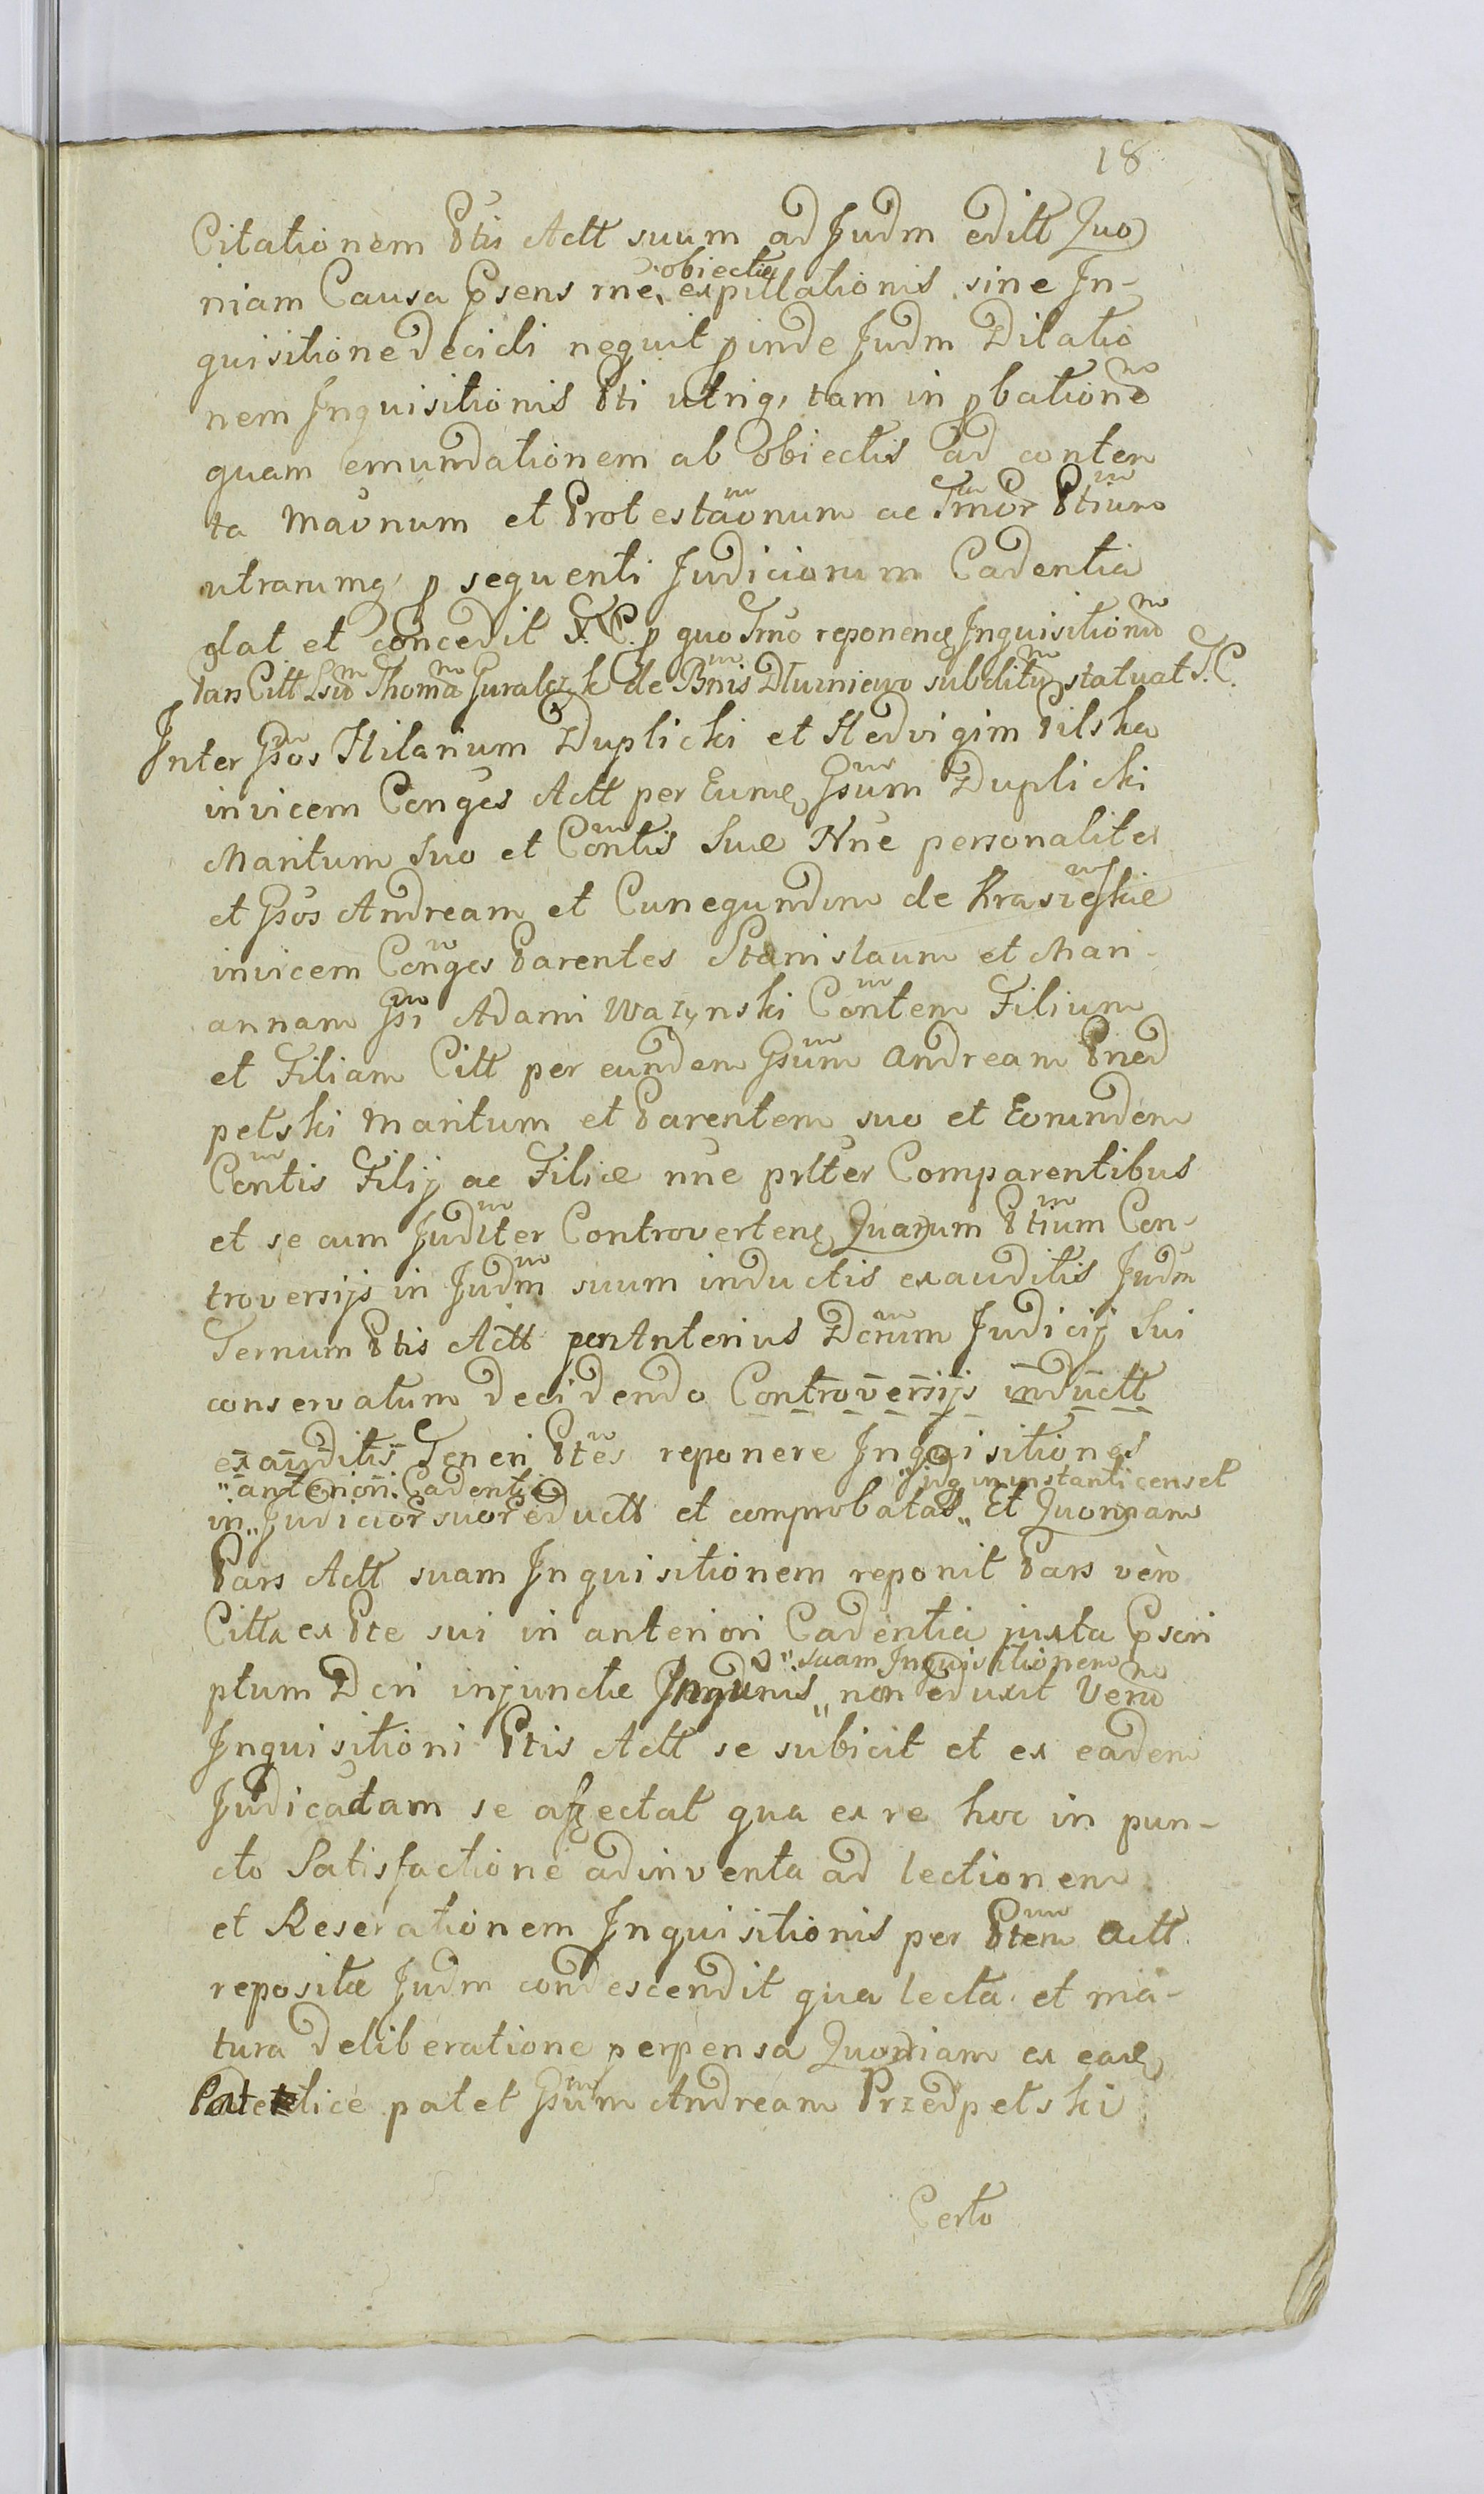 18
Citationem Ptis Actt suum ad Judm editt Quo
niam Causa Psens rne, obiectæ expillationis sine In-
quisitione decidi nequit pinde Judm Dilatio
nem Inquisitionis Pti utriq, tam in pbatione
quam emundationem ab obiectis ad conten
ta Maonum et Protestaonum ac Tmor Ptium
utrarumq, p sequenti Judiciorum Cadentia
dat et concedit T. C. p quo Tmo reponenc Inquisitionis
Pars Citt Lsum Thoma Guralczyk de Bnis Dluniewo subditu statuat T. C.
Inter Gsos Hilarium Duplicki et Hedvigim Pilska
invicem Conges Actt per Eund Gsum Duplicki
Maritum Suo et Contis Suæ Nne personaliter
et Gsos Andream et Cunegundim de Krasieskie
invicem Conges Parentes Stanislaum et Mari-
annam Gsi Adami Wazynski Contem Filium
et Filiam Citt per eundem Gsum Andream Pned
petski Maritum et Parentem suo et Eorundem
Contis Filij ac Filiæ nne prlter Comparentibus
et se cum Juditer Controvertenc Quarum Ptium Con-
troversijs in Judm suum inductis exauditis Judm
Ternum Ptis Actt per Anterius Dcrum Judicij Sui
conservatum decidendo Controversijs inductt
exauditis Teneri Ptes reponere Inquisitiones
"anteriori Cadentia idq in instanti censet
in "Judicior suor eductt et comprobatas" Et Quoniam
Pars Actt suam Inquisitionem reponit Pars vero
Citta ex Pte sui in anteriori Cadentia juxta Pscri
"suam Inquisitionem
ptum Dcri injunctæ Inqunis" non eduxit Verum
Inquisitioni Ptis Actt se subicit et ex eadem
Judicatam se affectat qua ex re hoc in pun-
cto Satisfactione adinventa ad lectionem
et Reserationem Inquisitionis per Ptem Actt
repositæ Judm condescendit qua lecta et ma-
tura deliberatione perpensa Quoniam ex ead
Patetice patet Gsum Andream Przedpetski
Certo